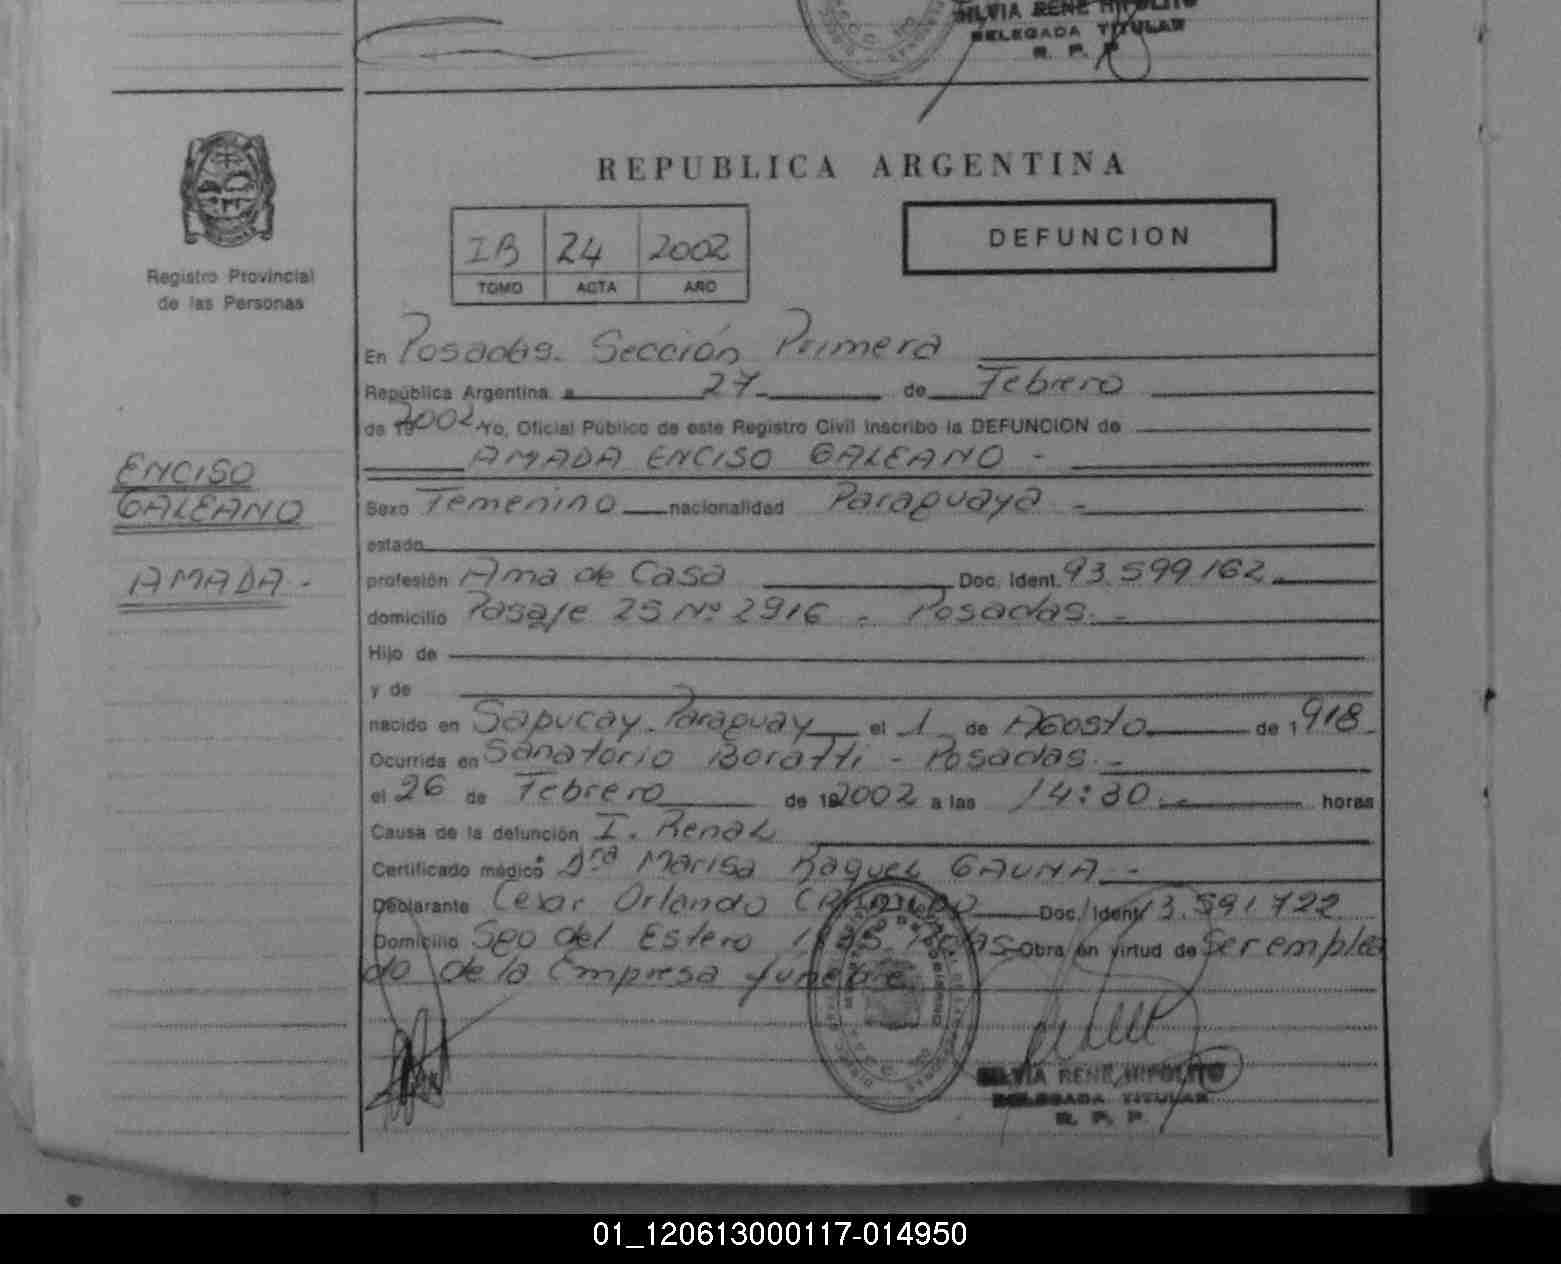 SILVIA RENE HIPOLITO
DELEGADA TITULAR
R. P. P.
Registro Provincial
de las Personas
REPUBLICA ARGENTINA
IB 24 2002
TOMO ACTA AÑO
DEFUNCION
En Posadas. Sección Primera
República Argentina a 27 de Febrero
de 19 2002 Yo, Oficial Público de este Registro Civil Inscribo la DEFUNCION de
AMADA ENCISO GALEANO -
ENCISO
GALEANO
AMADA -
Sexo Femenino nacionalidad Paraguaya -
estado
profesión Ama de Casa Doc. Ident. 93.599162
domicilio Pasaje 25 Nº 2916 - Posadas. -
Hijo de
y de
nacido en Sapucay - Paraguay el 1 de Agosto de 1918
Ocurrida en Sanatorio Boratti - Posadas. -
el 26 de Febrero de 19 2002 a las 14:30. - horas
Causa de la defunción I. Renal
Certificado médico Dra Marisa Raquel GAUNA -
Declarante Cesar Orlando Doc. Ident. 13.591.722
Domicilio Sgo del Estero Obra en virtud de Ser emplea
do de la Empresa funebre
SILVIA RENE HIPOLITO
DELEGADA TITULAR
R. P. P.
01_120613000117-014950